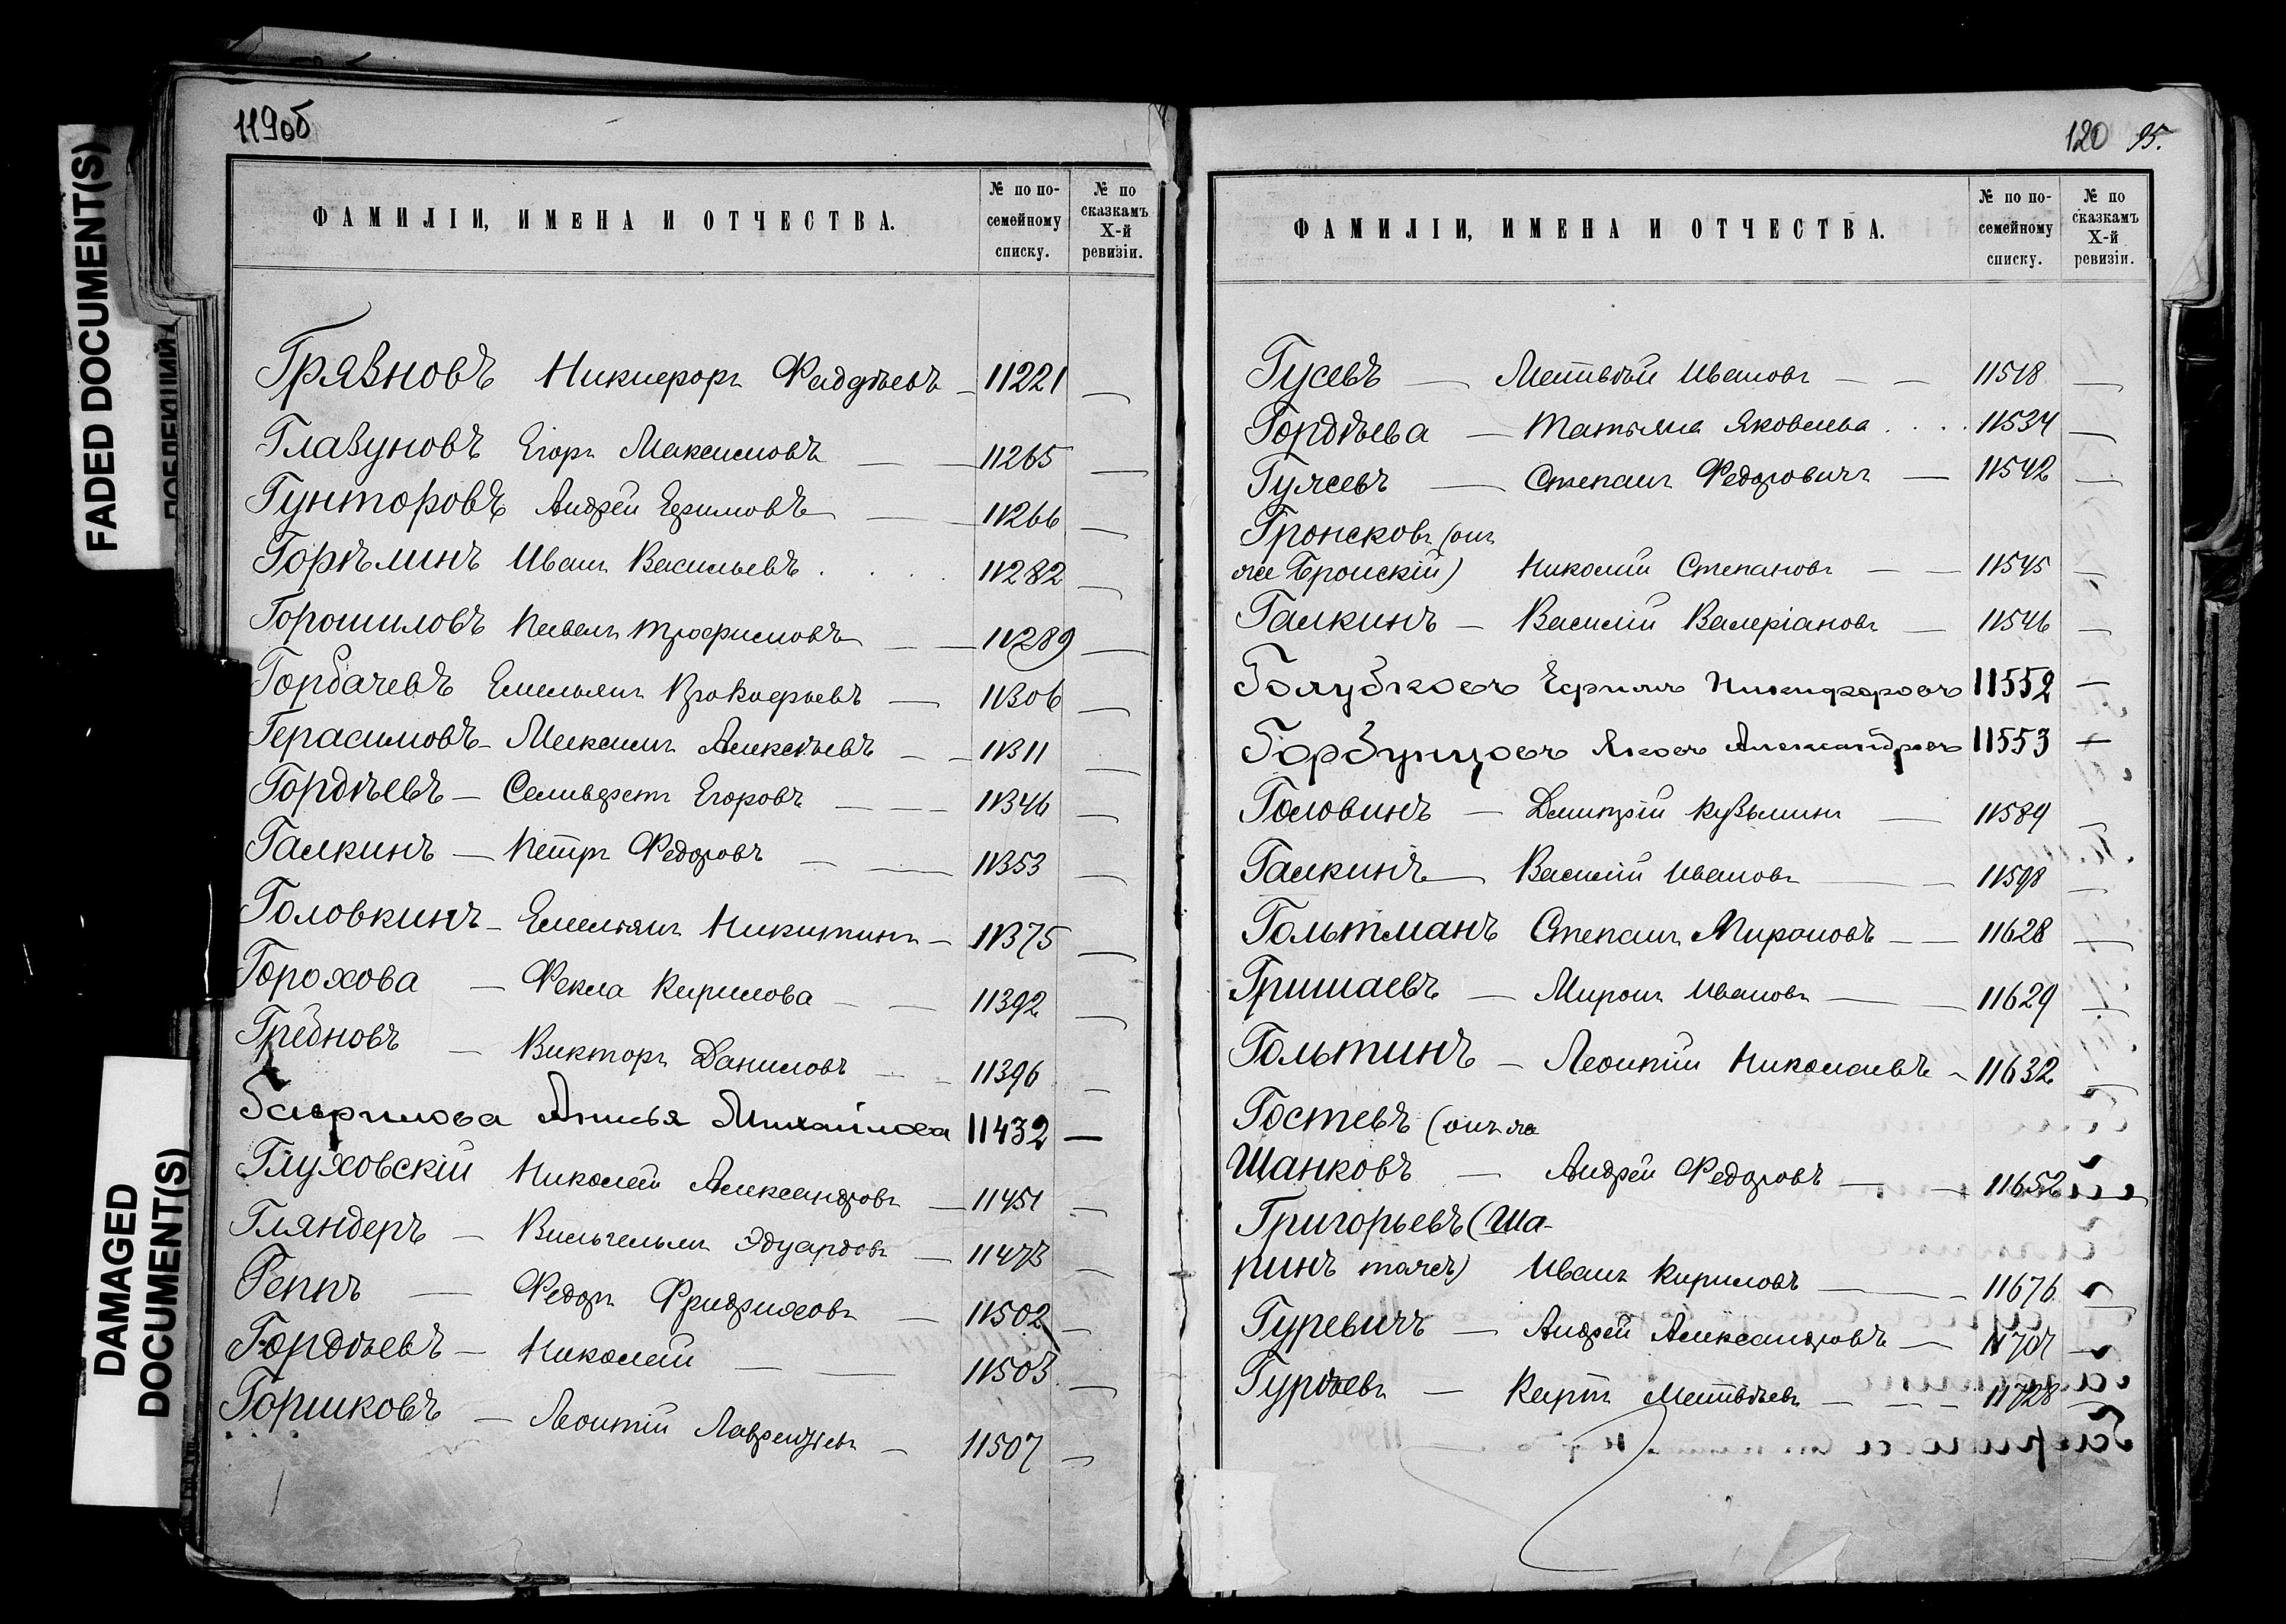 119об
ФАМИЛІИ, ИМЕНА И ОТЧЕСТВА.
№ по по-
семейному
списку.
№ по
сказкамъ
X-й
ревизіи.
Грязновъ Никифоръ Фаддѣевъ — 11221 —
Глазуновъ Егоръ Максимовъ — — 11265 —
Гунторовъ Андрей Ефимовъ — — 11266 —
Горѣлинъ Иванъ Васильевъ . . . . 11282 —
Горошиловъ Павелъ Трофимовъ — — 11289 —
Горбачевъ Емельянъ Прокофьевъ — 11306 —
Герасимовъ — Максимъ Алексѣевъ — — 11311 —
Гордѣевъ — Селивестъ Егоровъ — — — 11346 —
Галкинъ — Петръ Федоровъ — — 11353 —
Головкинъ — Емельянъ Никитинъ — 11375 —
Горохова — Фекла Кирилова — — 11392 —
Гребновъ — Викторъ Даниловъ — — 11396 —
Гаврилова Анисья Михайлова 11432 —
Глуховскій Николай Александровъ — 11451 —
Гляндеръ — Вильгельмъ Эдуардовъ — 11473 —
Геппъ — Федоръ Фридриховъ — 11502 —
Гордѣевъ — Николай — — 11503 —
Горшковъ — Леонтій Лаврентьевъ — 11507 —
120 95.
ФАМИЛІИ, ИМЕНА И ОТЧЕСТВА.
№ по по-
семейному
списку.
№ по
сказкамъ
X-й
ревизіи.
Гусевъ — Матвѣй Ивановъ — — 11518 —
Гордѣева — Татьяна Яковлева . . . . 11534 —
Гуляевъ — Степанъ Федоровичъ — 11542 —
Гронсковъ (онъ
же Бронскій) Николай Степановъ — — 11545 —
Галкинъ — Василій Валеріановъ — 11546 —
Голубковъ Ефимъ Никифоровъ 11552 —
Горбунцовъ Яковъ Александровъ 11553 —
Головинъ — Дмитрій Кузьминъ — 11589 —
Галкинъ — Василій Ивановъ — — 11598 —
Гольтманъ Степанъ Мироновъ — — 11628 —
Гришаевъ — Миронъ Ивановъ — — 11629 —
Гольтинъ — Леонтій Николаевъ — 11632 —
Гостевъ (онъ же
Шанковъ — Андрей Федоровъ — — 11652 —
Григорьевъ (Ша-
ринъ тожъ) Иванъ Кириловъ — — 11676 —
Гуревичъ — Андрей Александровъ — 11707 —
Гурѣевъ — Карпъ Матвѣевъ — — — 11728 —
FADED DOCUMENT(S)
DAMAGED
DOCUMENT(S)